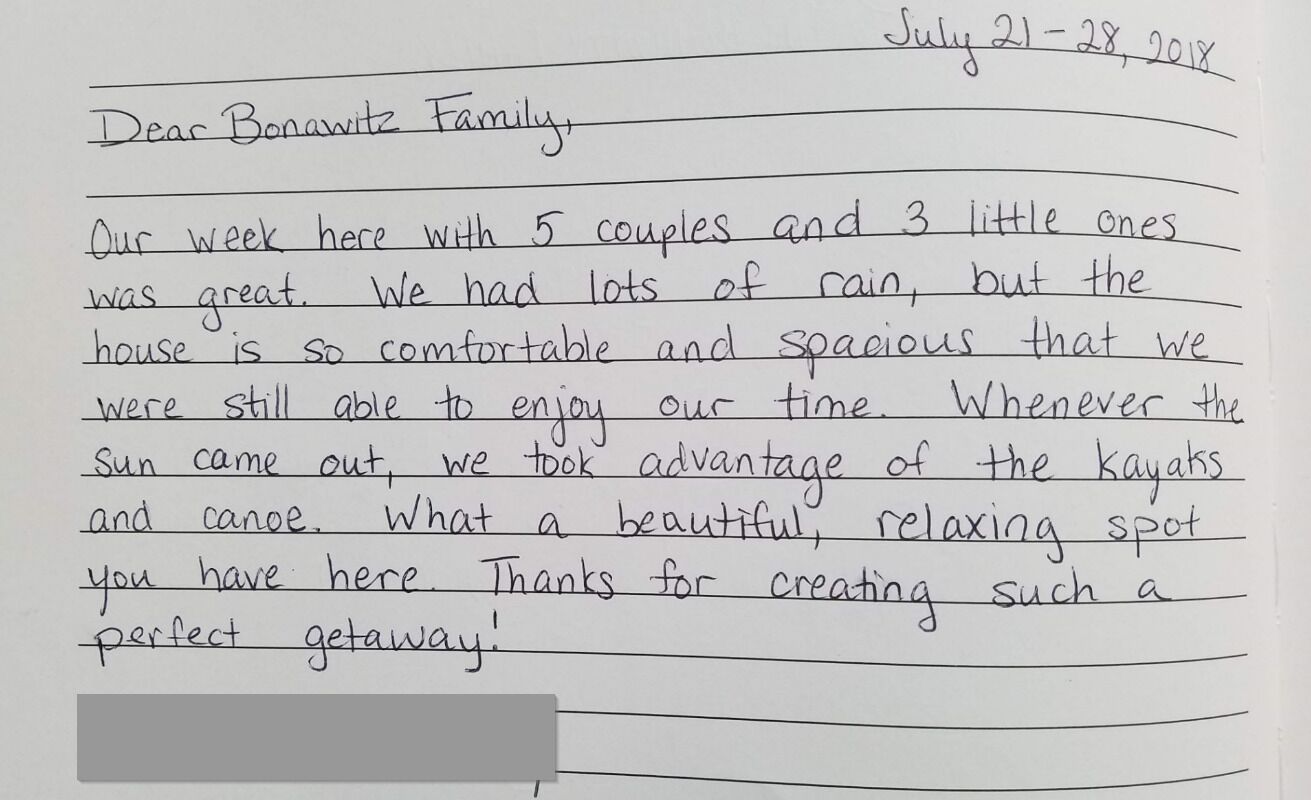 July 21-28, 2018
Dear Bonawitz Family,
Our week here with 5 couples and 3 little ones
was great. We had lots of rain, but the
house is so comfortable and spacious that we
were still able to enjoy our time. Whenever the
sun came out, we took advantage of the kayaks
and canoe. What a beautiful, relaxing spot
you have here. Thanks for creating such a
perfect getaway!